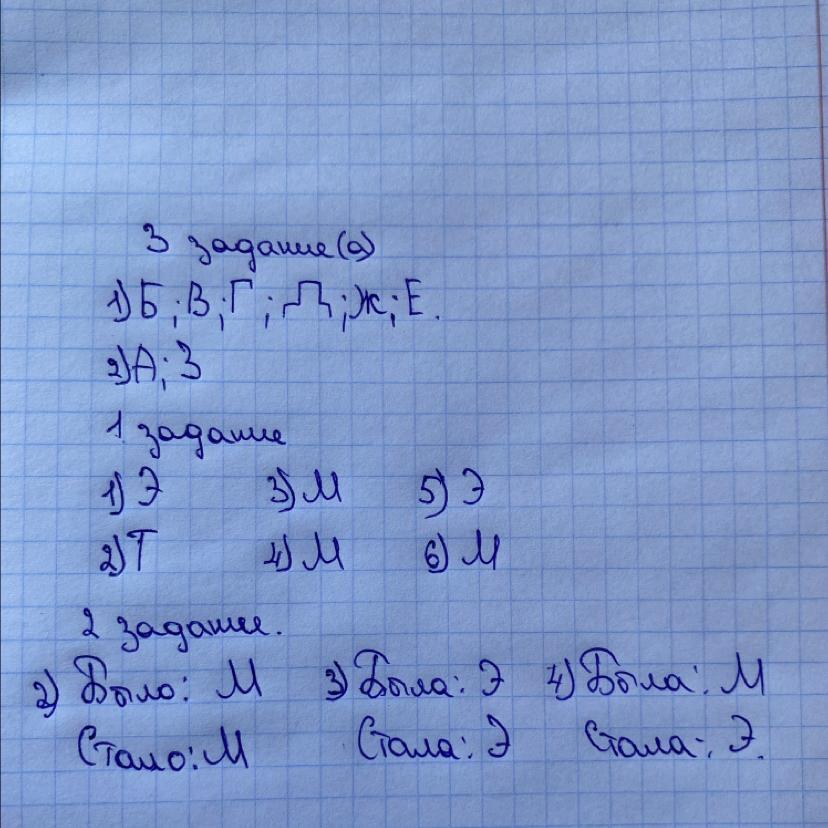 3 задание(а)
1) Б; В; Г; Д; Ж; Е.
2) А; З
1 задание
1) Э 3) М 5) Э
2) Т 4) М 6) М
2 задание.
2) Было: М 3) Была: Э 4) Была: М
Стало: М Стала: Э Стала: Э.